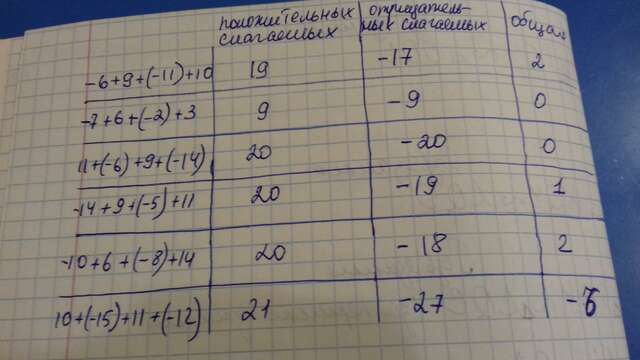 положительных отрицатель- общая
слагаемых ных слагаемых
-6+9+(-11)+10 19 -17 2
-7+6+(-2)+3 9 -9 0
11+(-6)+9+(-14) 20 -20 0
-14+9+(-5)+11 20 -19 1
-10+6+(-8)+14 20 -18 2
10+(-15)+11+(-12) 21 -27 -6